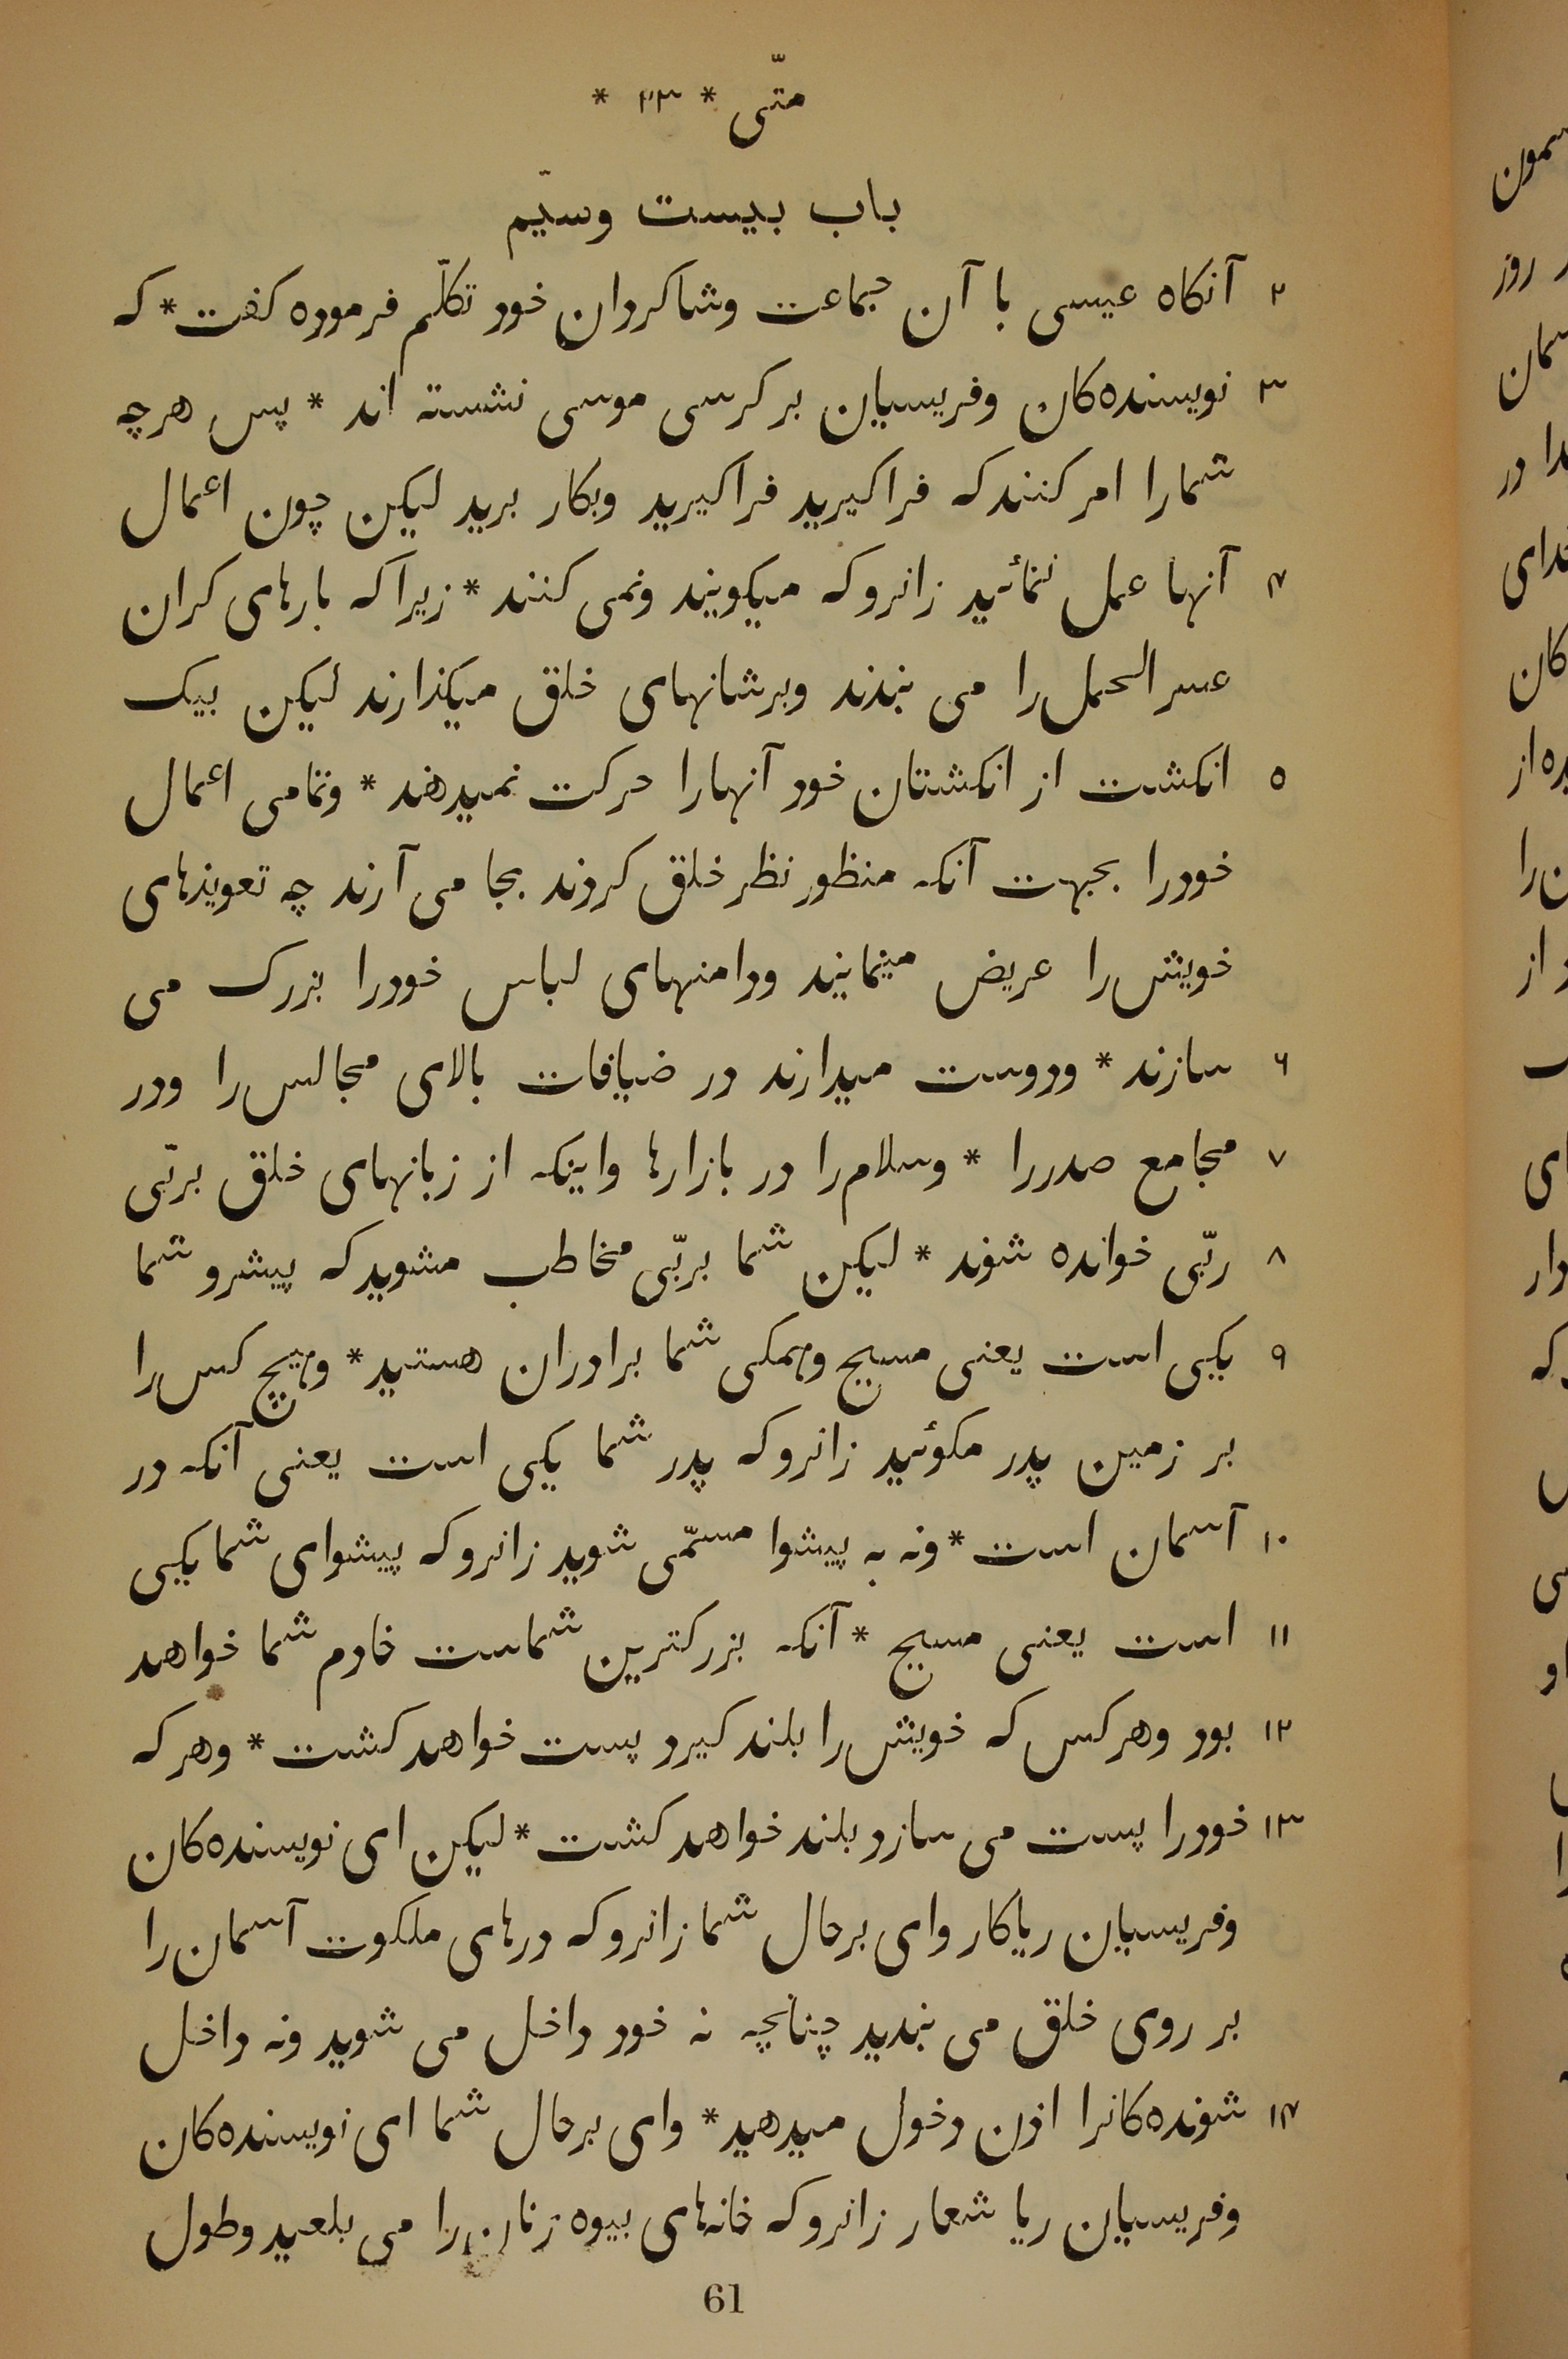 متّی * ۲۳ *
باب بیست وسیّم
۲ آنکاه عیسی با آن جماعت وشاکردان خود تکلّم فرموده کفت * که
۳ نویسنده‌کان وفریسیان بر کرسی موسی نشسته اند * پس هرچه
شمارا امر کنند که فراکیرید فراکیرید وبکار برید لیکن چون اعمال
۴ آنها عمل ننمائید زانرو که میکویند ونمی کنند * زیرا که بارهای کران
عسر الحمل را می بندند وبرشانهای خلق میکذارند لیکن بیک
۵ انکشت از انکشتان خود آنهارا حرکت نمیدهند * وتمامی اعمال
خودرا بجهت آنکه منظور نظر خلق کردند بجا می آرند چه تعویذهای
خویش را عریض مینمایند ودامنهای لباس خودرا بزرک می
۶ سازند * ودوست میدارند در ضیافات بالای مجالس را ودر
۷ مجامع صدررا * وسلام را در بازارها واینکه از زبانهای خلق بربّی
۸ ربّی خوانده شوند * لیکن شما بربّی مخاطب مشوید که پیشرو شما
۹ یکیی است یعنی مسیح وهمکی شما برادران هستید * وهیچ کس را
بر زمین پدر مکوئید زانرو که پدر شما یکی است یعنی آنکه در
۱۰ آسمان است * ونه به پیشوا مسمّی شوید زانرو که پیشوای شما یکیی
۱۱ است یعنی مسیح * آنکه بزرکترین شماست خادم شما خواهد
۱۲ بود وهر کس که خویش را بلند کیرد پست خواهد کشت * وهر که
۱۳ خودرا پست می سازد بلند خواهد کشت * لیکن ای نویسنده‌کان
وفریسیان ریاکار وای برحال شما زانرو که درهای ملکوت آسمان را
بر روی خلق می بندید چنانچه نه خود داخل می شوید ونه داخل
۱۴ شونده‌کانرا اذن دخول میدهید * وای برحال شما ای نویسنده‌کان
وفریسیان ریا شعار زانرو که خانه‌های بیوه زنان را می بلعید وطول
61